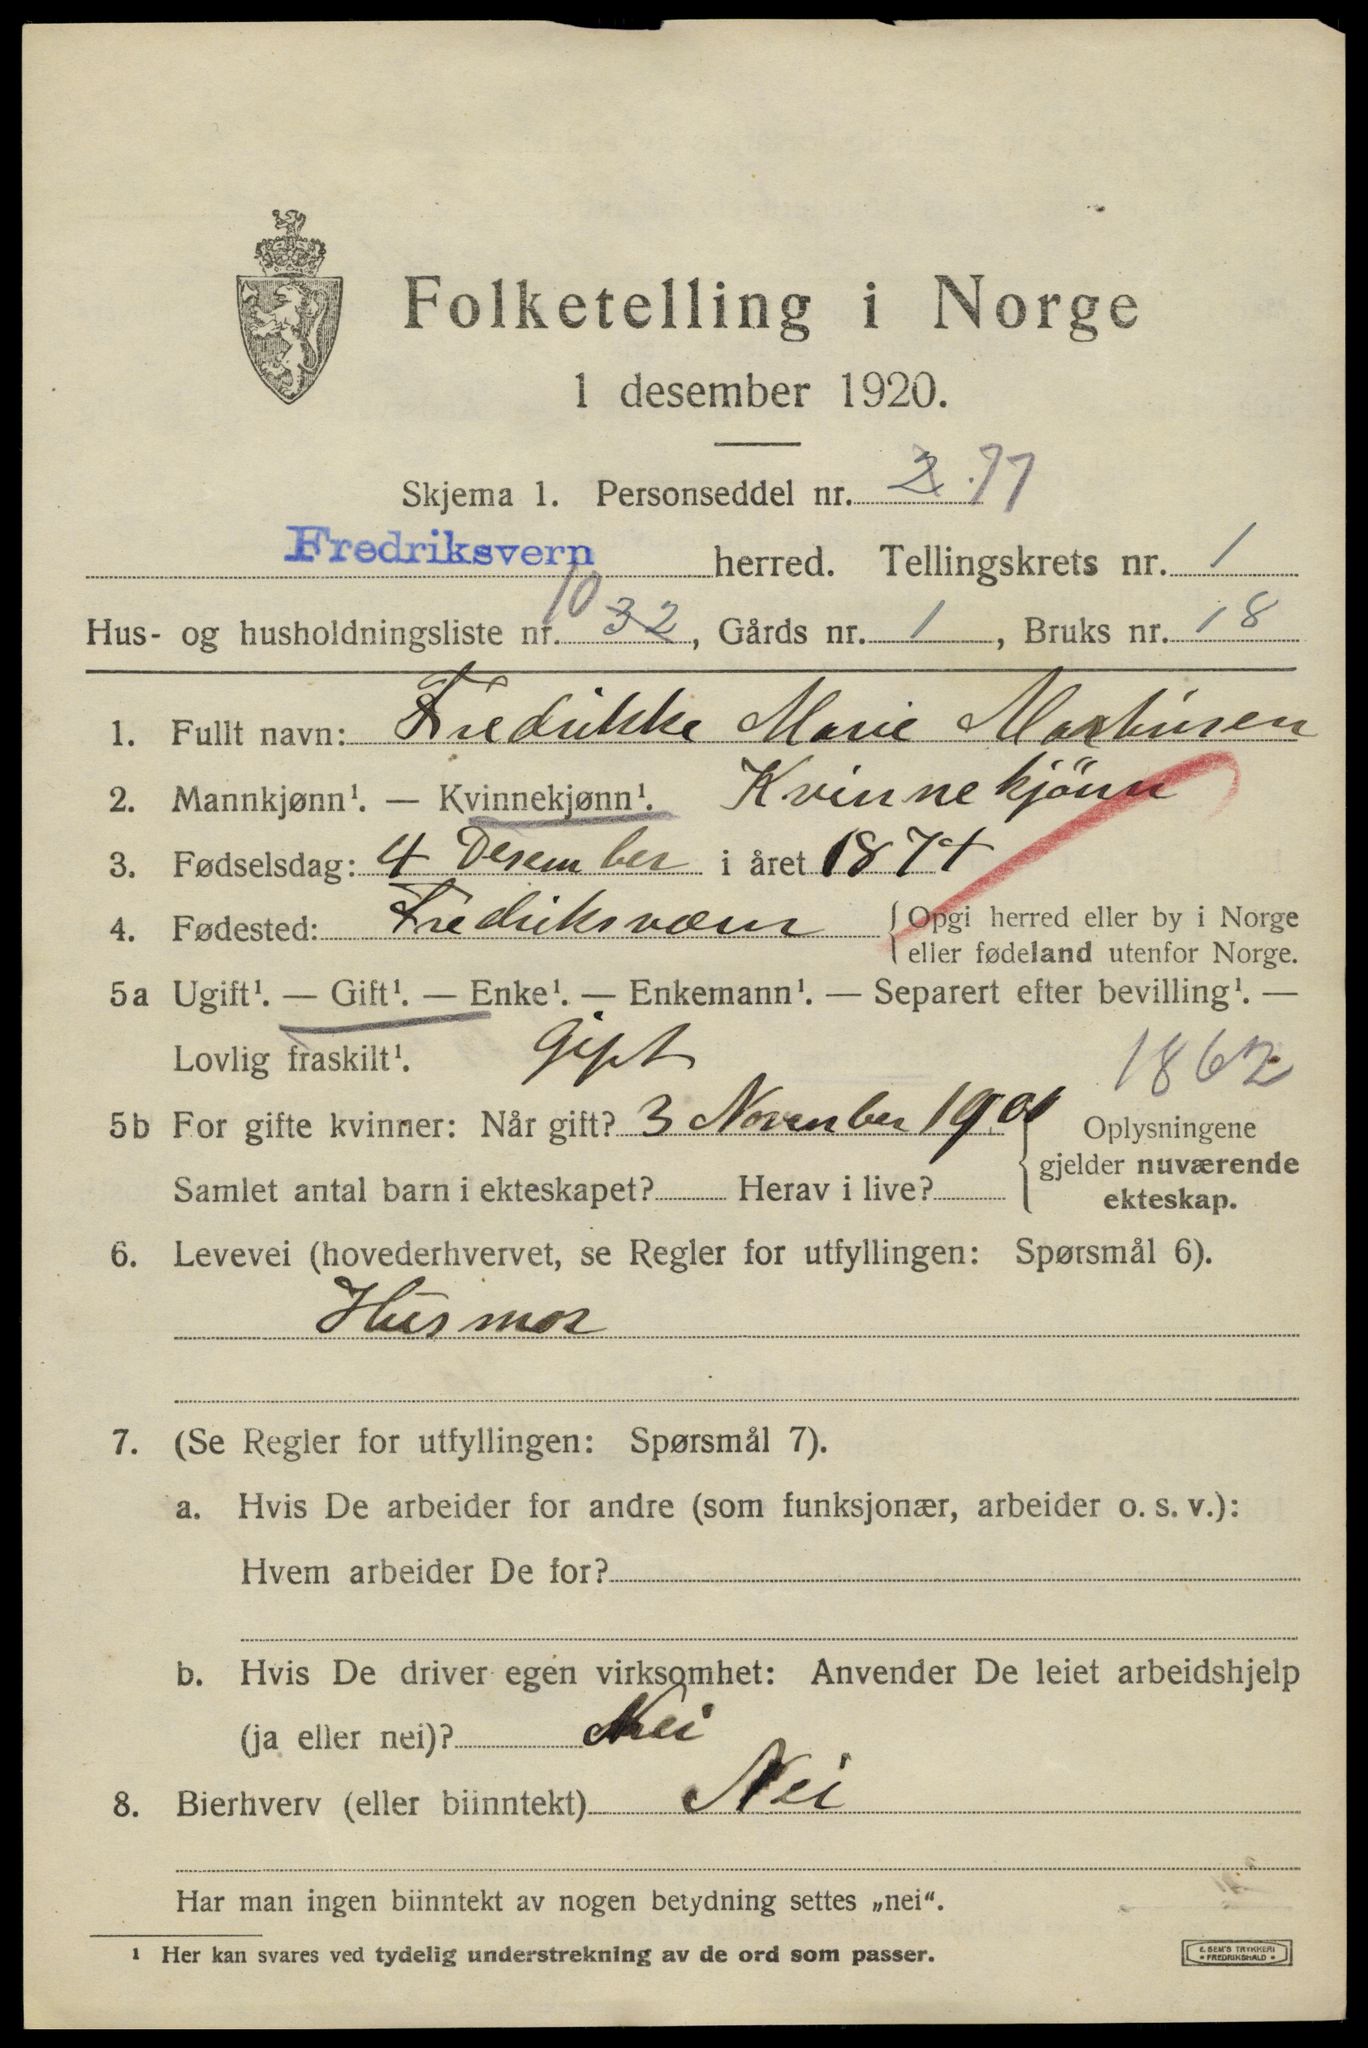 Folketelling i Norge
1 desember 1920.
Skjema 1. Personseddel nr. 2 . 77
Fredriksvern herred. Tellingskrets nr. 1
10
Hus- og husholdningsliste nr. 32, Gårds nr. 1, Bruks nr. 18
1. Fullt navn: Fredrikke Marie Martinsen
2. Mannkjønn¹. — Kvinnekjønn¹. Kvinnekjönn
3. Fødselsdag: 4 Desember i året 1874
4. Fødested: Fredriksværn { Opgi herred eller by i Norge
eller fødeland utenfor Norge.
5a Ugift¹. — Gift¹. — Enke¹. — Enkemann¹. — Separert efter bevilling¹. —
Lovlig fraskilt¹. Gift 1862
5b For gifte kvinner: Når gift? 3 November 1901 { Oplysningene
gjelder nuværende
Samlet antal barn i ekteskapet? Herav i live?
ekteskap.
6. Levevei (hovederhvervet, se Regler for utfyllingen: Spørsmål 6).
Husmor
7. (Se Regler for utfyllingen: Spørsmål 7).
a. Hvis De arbeider for andre (som funksjonær, arbeider o. s. v.):
Hvem arbeider De for?
b. Hvis De driver egen virksomhet: Anvender De leiet arbeidshjelp
(ja eller nei)? Nei
8. Bierhverv (eller biinntekt) Nei
Har man ingen biinntekt av nogen betydning settes „nei“.
¹ Her kan svares ved tydelig understrekning av de ord som passer.
E. SEM'S TRYKKERI
• FREDRIKSHALD •